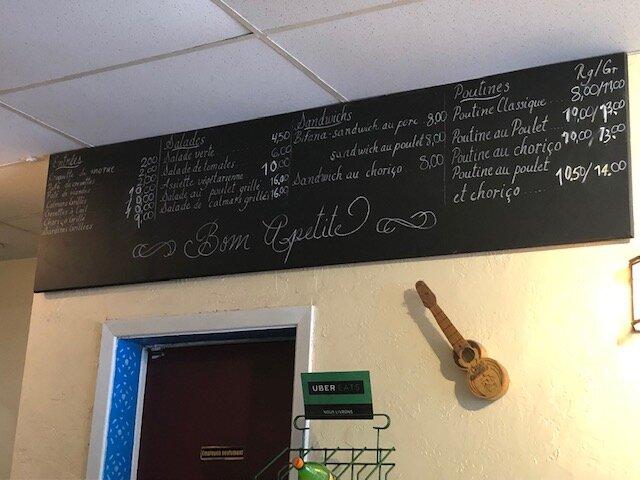 Entrées
de morue 2.00
Calmars Grillés
Crevettes à l'ail
Chouriço Grillé
Sardines Grillées
Salades
Salade verte 4,50
Salade de tomates 6,00
Assiette végétarienne 10,00
Salade au poulet grillé 16,00
Salade de calmars grillés 16,00
Sandwichs
Bifana-sandwich au porc 8,00
sandwich au poulet 8,00
Sandwich au choriço 8,00
Poutines Rg/Gr
Poutine Classique 8,00/11,00
Poutine au Poulet 10,00/13,00
Poutine au choriço 10,00/13,00
Poutine au poulet
et choriço 10,50/14,00
Bom Apetite
UBER EATS
NOUS LIVRONS
Employés seulement